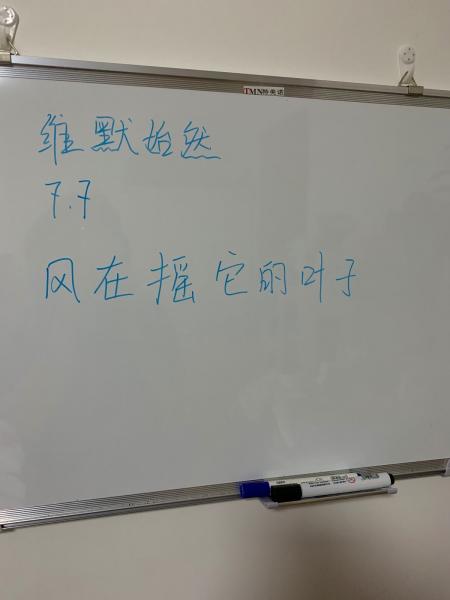 TMN特美诺
维默始然
7.7
风在摇它的叶子